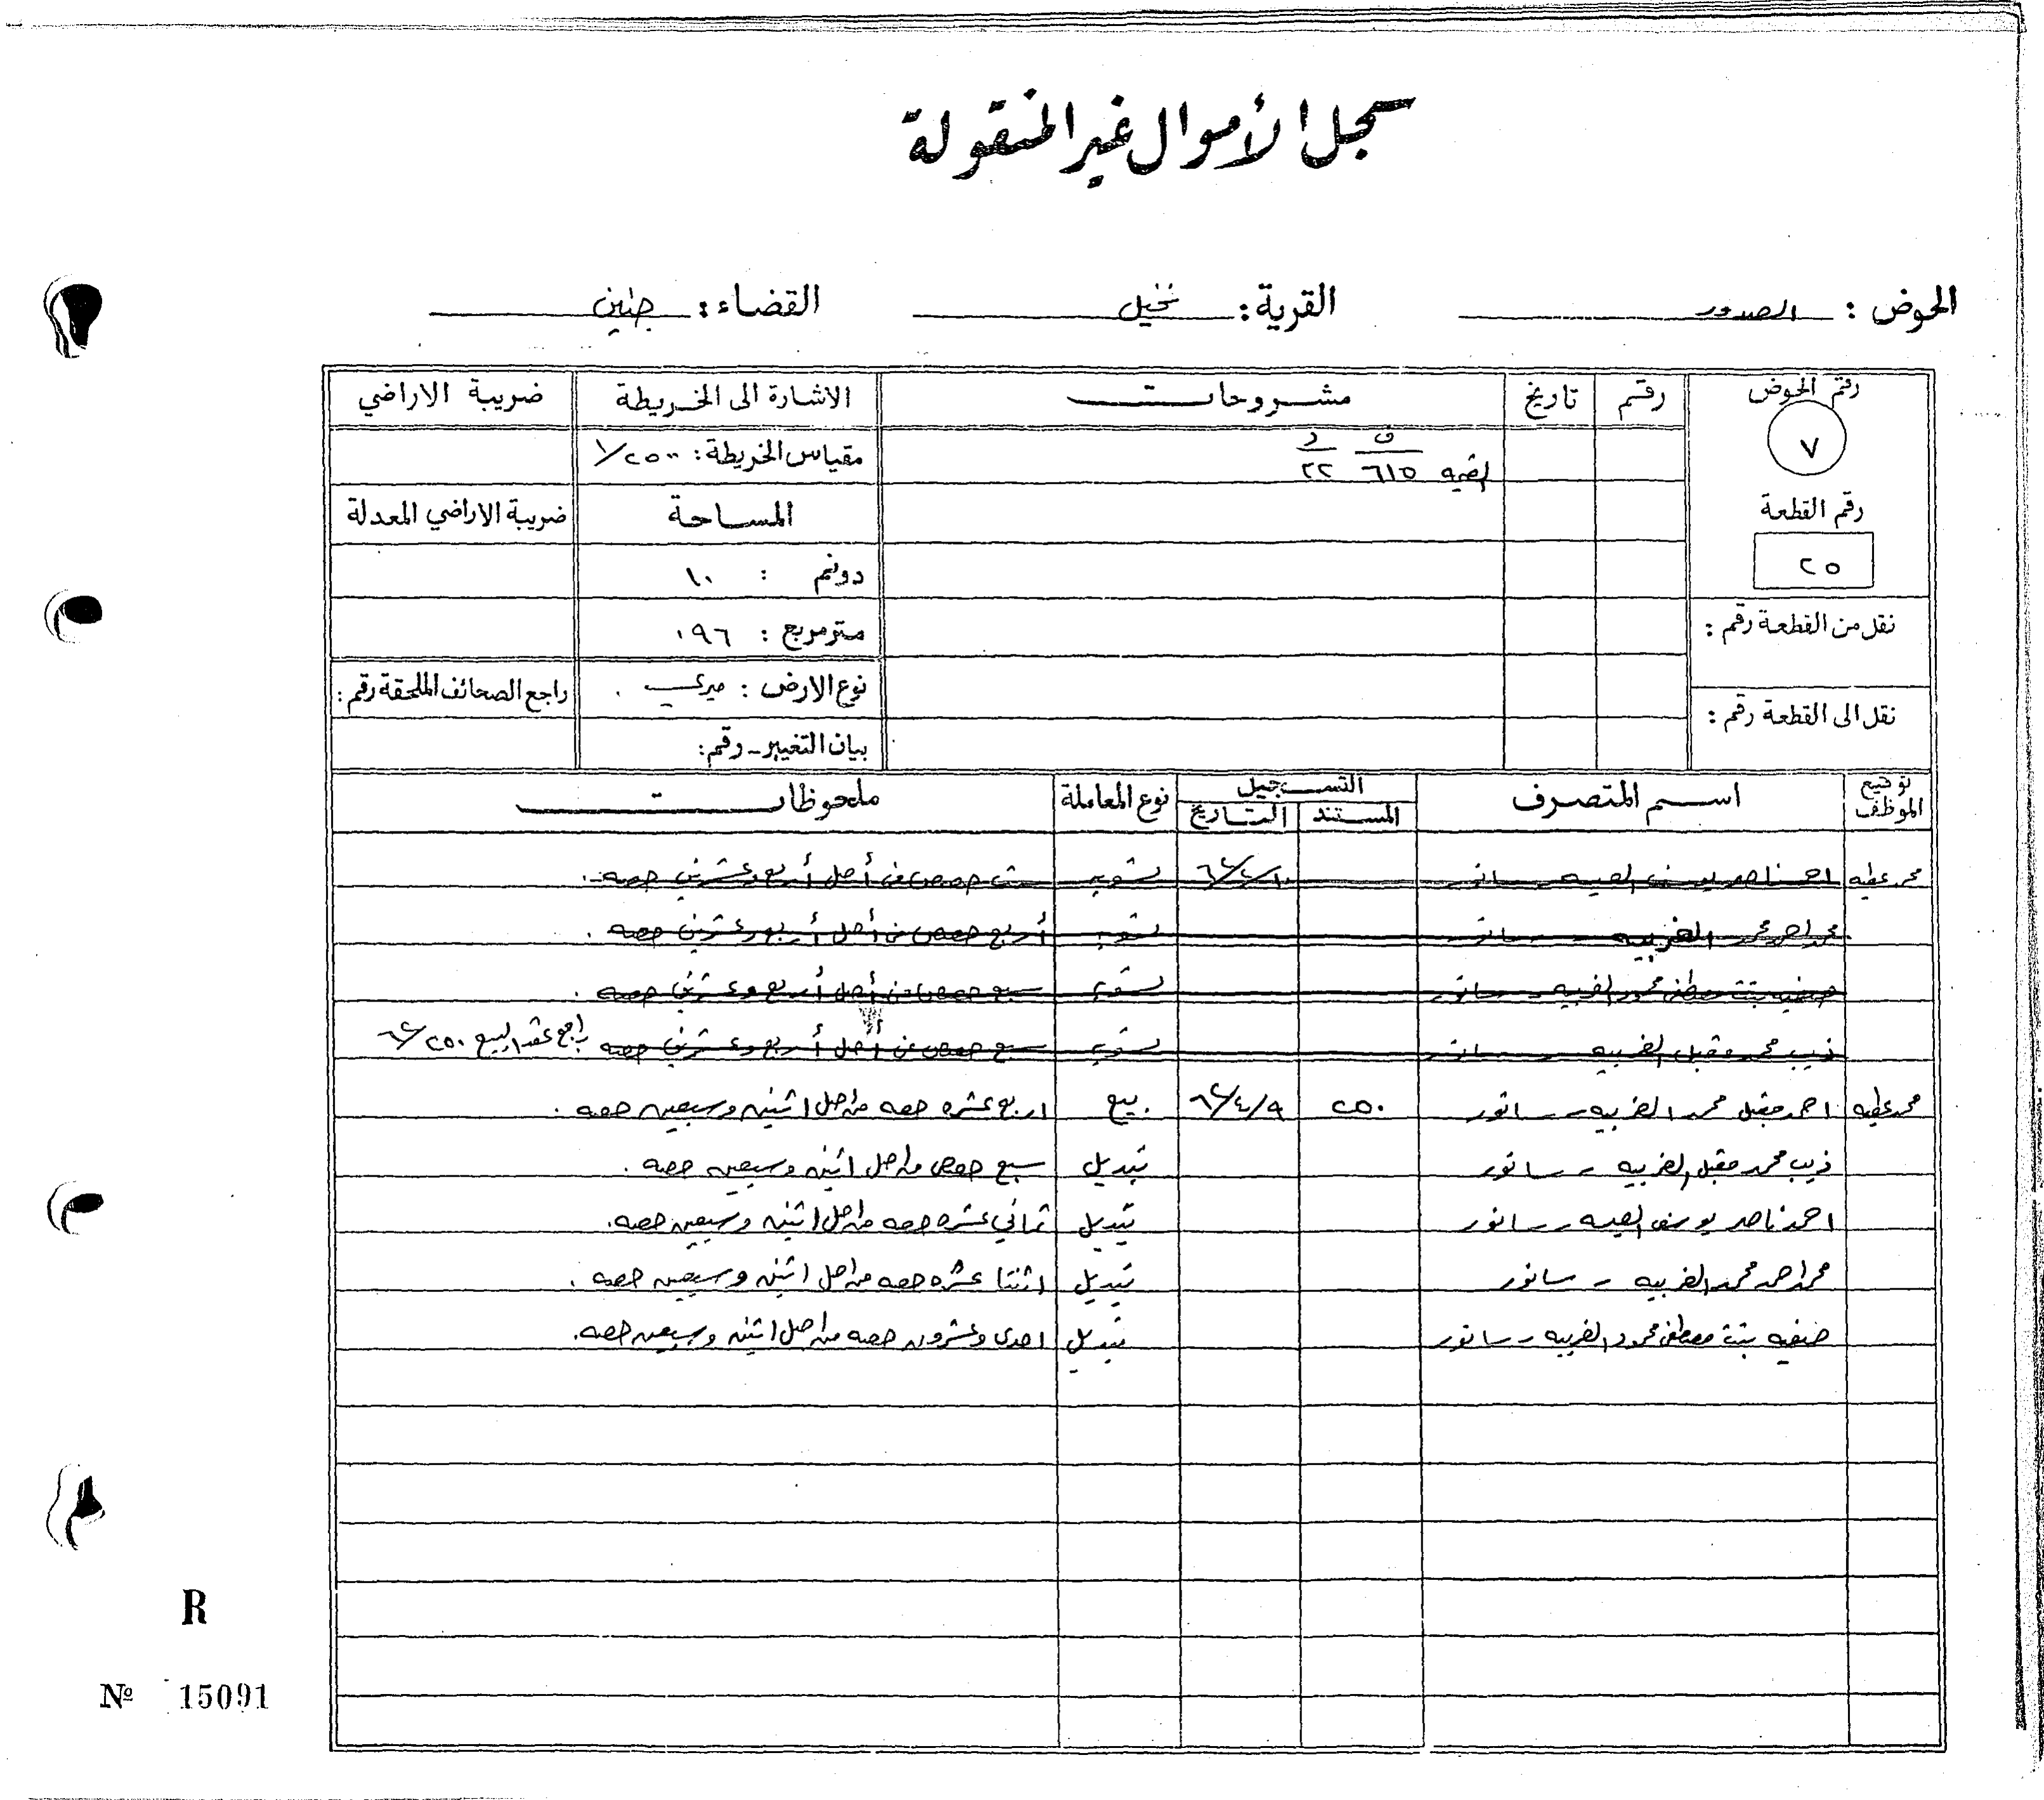 سجل الأموال غير المنقولة
الحوض : الصدور القرية : نخيل القضاء : جنين
رقم الحوض رقم تاريخ مشروحات الاشارة الى الخريطة ضريبة الاراضي
٧ ف د مقياس الخريطة : ١/٢٥٠٠
القيمه ٦١٥ ٢٢
رقم القطعة المساحة ضريبة الاراضي المعدلة
٢٥ دونم : ١٠
نقل من القطعة رقم : متر مربع : ٠٩٦
نوع الارض : ميري راجع الصحائف الملحقة رقم :
نقل الى القطعة رقم : بيان التغيير - رقم :
توقيع الموظف اسم المتصرف التسجيل نوع المعاملة ملحوظات
المستند التاريخ
محمد عطيه احمد ناصر يوسف العيسه - سانور تسويه ست حصص من أصل أربع وعشرين حصه .
محمد احمد محمد الغربيه - سانور تسويه أربع حصص من أصل أربع وعشرين حصه .
صفيه بنت مصطفى محمود الغربيه - سانور تسويه سبع حصص من أصل أربع وعشرين حصه .
ذيب محمد مقبل الغربيه - سانور تسويه سبع حصص من أصل أربع وعشرين حصه راجع عقد البيع ٢٥٠/٦٤
محمد عطيه احمد مقبل محمد الغربيه - سانور ٢٥٠ ٩/٤/٦٤ بيع اربع عشره حصه من اصل اثنين وسبعين حصه .
ذيب محمد مقبل الغربيه - سانور تبديل سبع حصص من اصل اثنين وسبعين حصه .
احمد ناصر يوسف العيسه - سانور تبديل ثماني عشره حصه من اصل اثنين وسبعين حصه .
محمد احمد محمد الغربيه - سانور تبديل اثنتا عشره حصه من اصل اثنين وسبعين حصه .
صفيه بنت مصطفى محمود الغربيه - سانور تبديل احدى وعشرون حصه من اصل اثنين وسبعين حصه .
R
Nº 15091